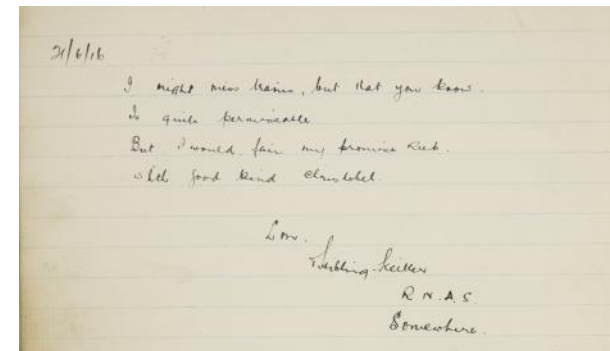 21/6/16
I might miss trains, but that you know.
Is quite permissable
But I would fain my promise keep.
with good kind Christobel.
Keiller
R.N.A.S.
Somewhere.